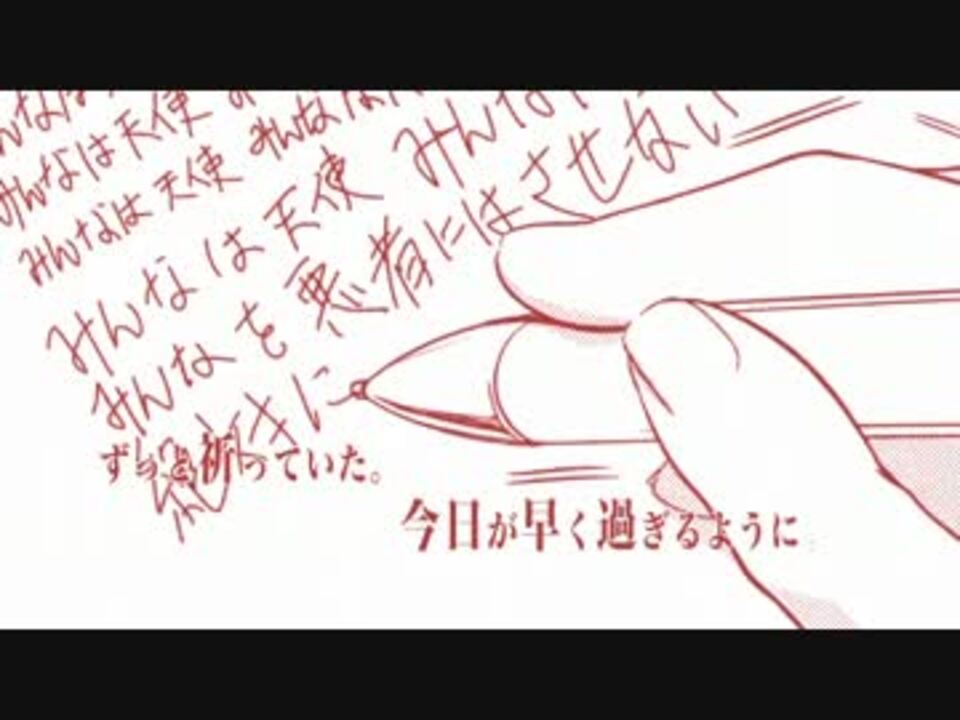 んなは
みんなは天使
みんなは天使 みんなは
みんなは天使 みんな
みんなを悪者にはさせない
に
ずっと祈っていた。
今日が早く過ぎるように